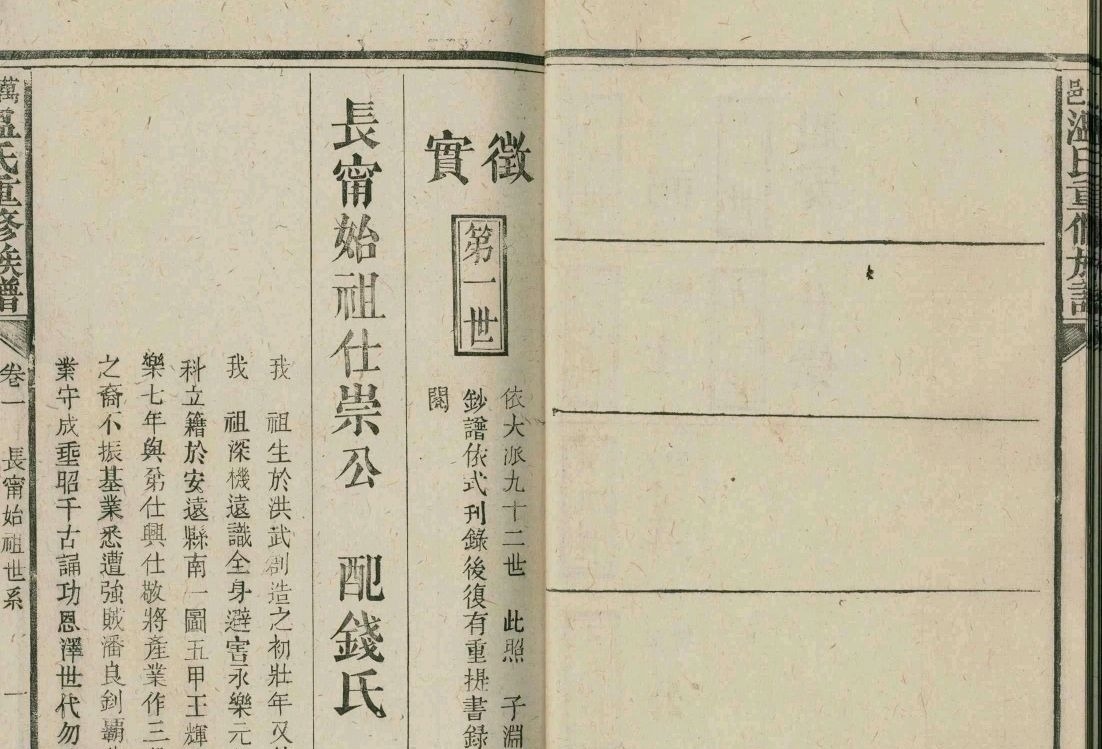 邑溫氏重修族譜
徵實
第一世
依大派九十二世 此照 子淵
鈔譜依式刊錄後復有重提書錄
閱
長甯始祖仕崇公 配錢氏
我 祖生於洪武創造之初壯年又
我 祖深機遠識全身避害永樂元
科立籍於安遠縣南一圖五甲王輝
樂七年與弟仕興仕敬將產業作三
之裔不振基業悉遭強賊潘良釗霸
業守成垂昭千古誦功恩澤世代勿
萬溫氏重修族譜 卷一 長甯始祖世系 一